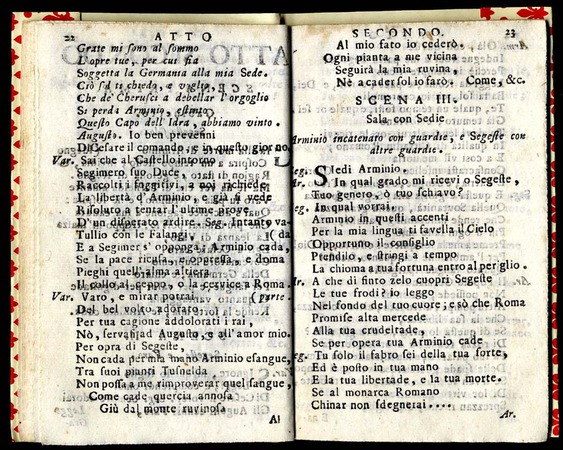 22 ATTO
Grate mi sono al sommo
L'opre tue, per cui fia
Soggetta la Germania alla mia Sede.
Ciò sol ti chiedo, e voglio,
Che de' Cherusci a debellar l'orgoglio
Si perda Arminio, estinto
Questo Capo dell'Idra, abbiamo vinto.
Augusto. Io ben prevenni
Di Cesare il comando, e in questo giorno
Var. Sai che al Castello intorno
Segimero suo Duce,
Raccolti i fuggitivi, a noi richiede
La libertà d'Arminio, e già si vede
Risoluto a tentar l'ultime prove
D'un disperato ardire. Seg. Intanto va
Tullio con le Falangi
E a Segimer s'opponga; Arminio cada,
Se la pace ricusa, e oppressa, e doma
Pieghi quell'alma altiera
Il collo al ceppo, o la cervice a Roma.
Var. Varo, e mirar potrai (parte.
Del bel volto adorato
Per tua cagione addolorati i rai,
Nò, servasi ad Augusto, e all'amor mio.
Per opra di Segeste,
Non cada per mia mano Arminio esangue,
Tra suoi pianti Tusnelda
Non possa a me rimproverar quel sangue,
Come cade quercia annosa
Giù dal monte ruvinosa
Al
SECONDO. 23
Al mio fato io cederò.
Ogni pianta a me vicina
Seguirà la mia ruvina,
Nè a cader sol io sarò. Come, &c.
SCENA III.
Sala con Sedie
Arminio incatenato con guardie, e Segeste con
altre guardie.
Seg. Siedi Arminio.
Ar. In qual grado mi ricevi o Segeste,
Tuo genero, ò tuo schiavo?
Seg. In qual vorrai.
Arminio in questi accenti
Per la mia lingua ti favella il Cielo
Opportuno il consiglio
Prendilo, e stringi a tempo
La chioma a tua fortuna entro al periglio.
Ar. A che di finto zelo cuopri Segeste
Le tue frodi? io leggo
Nel fondo del tuo cuore; e sò che Roma
Promise alta mercede
Alla tua crudeltade,
Se per opera tua Arminio cade
Seg. Tu solo il fabro sei della tua sorte,
Ed è posto in tua mano
E la tua libertade, e la tua morte.
Se al monarca Romano
Chinar non sdegnerai....
Ar.